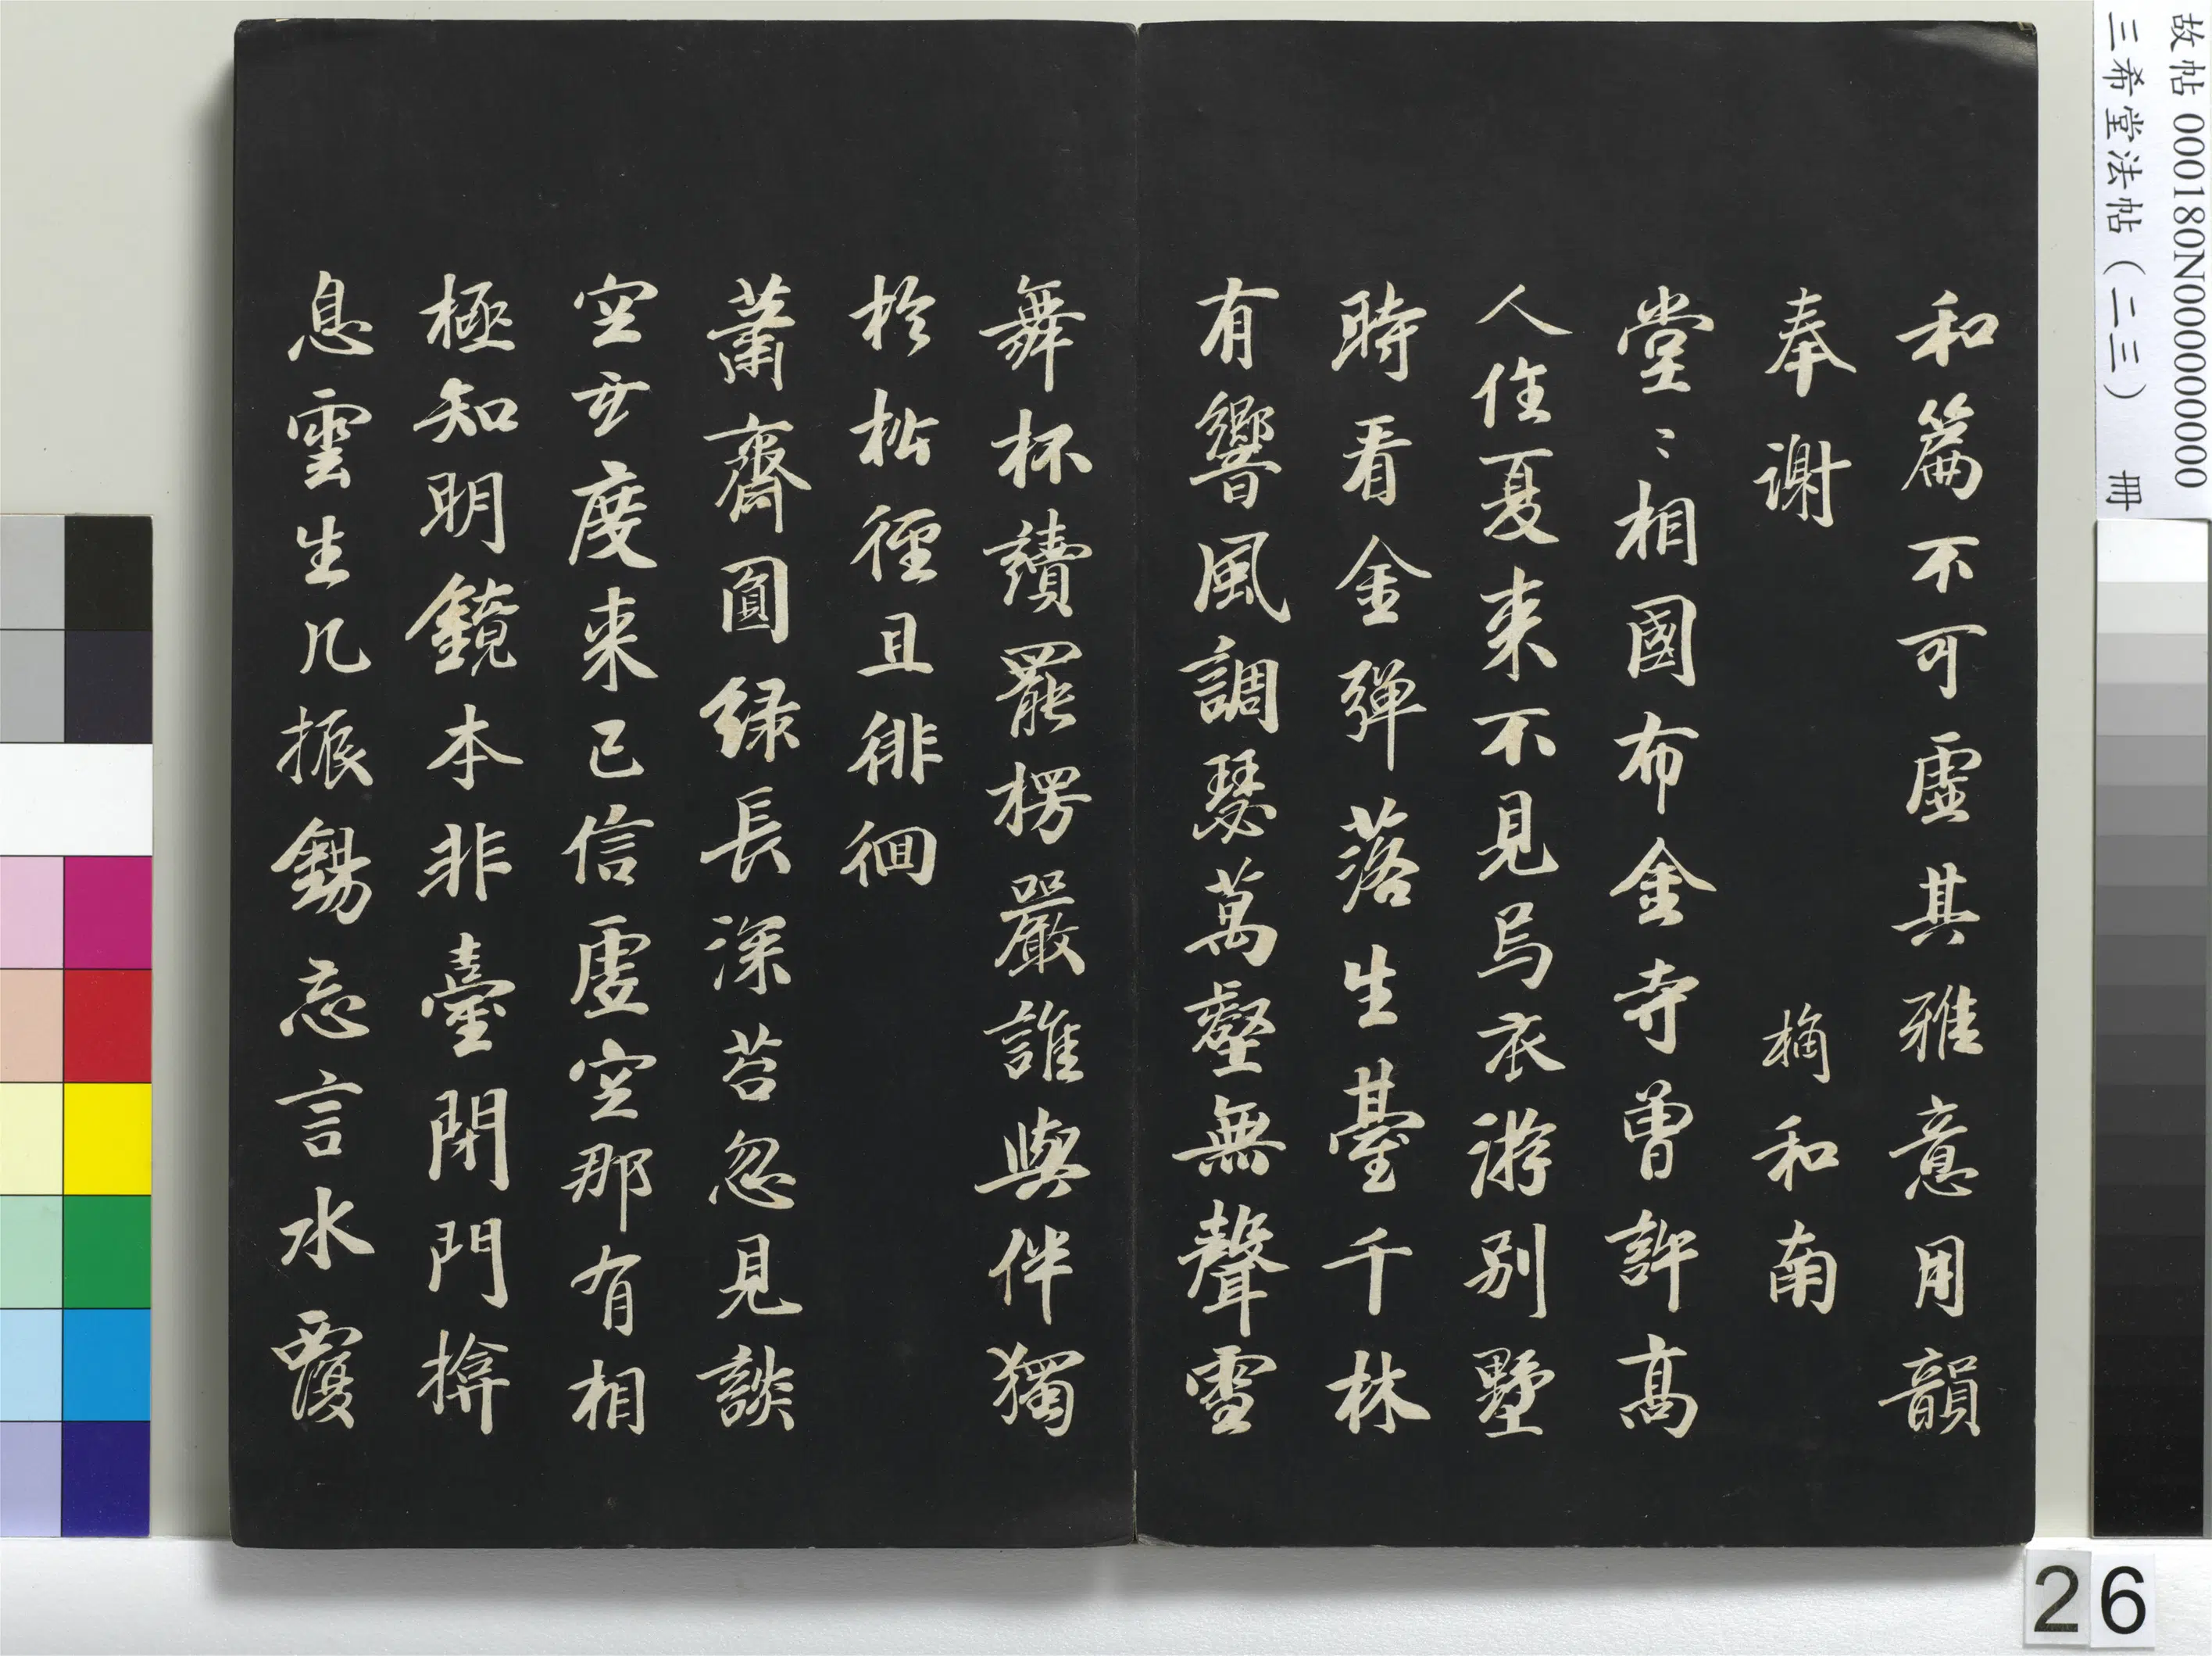 和篇不可虛其雅意用韻
奉謝 楠和南
堂〻相國布金寺曾許高
人住夏来不見烏衣游別墅
時看金彈落生臺千林
有響風調瑟萬壑無聲雪
舞杯讀罷楞嚴誰與伴獨
於松徑且徘徊
蕭齋圓綠長深苔忽見談
空亞度来已信虛空那有相
極知明鏡本非臺閉門揜
息雲生几振錫忘言水覆
故帖 000180N000000000
三希堂法帖（二三） 冊
26